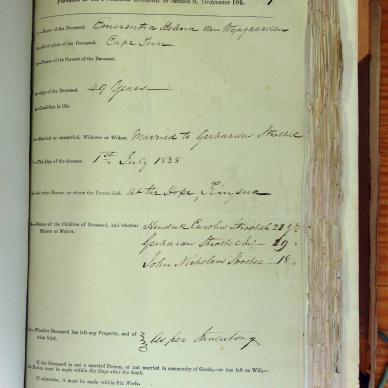 Pursuant to the Provisions contained in Section 9, Ordinance 104,
1.—Name of the Deceased. Emerentia Helena van Wyngaarden
2.—Birth-place of the Deceased. Cape Town
3.—Names of the Parents of the Deceased.
4.—Age of the Deceased. 49 Years
5.—Condition in life.
6.—Married or unmarried, Widower or Widow. Married to Gerhardus Stroebel
7.—The Day of the decease. 1st July 1838
8.—At what House, or where the Person died. At the Hope, Knysna
9.—Names of the Children of Deceased, and whether Minors or Majors.
Hendrik Carolus Stroebel 22
Gerhardus Stroebel
John Nicholaas Stroebel 18
Whether Deceased has left any Property, and of what kind. As per Inventory
If the Deceased is not a married Person, or not married in community of Goods,—or has left no Will,—
must be made within Six Days after the death.
If otherwise, it must be made within Six Weeks.